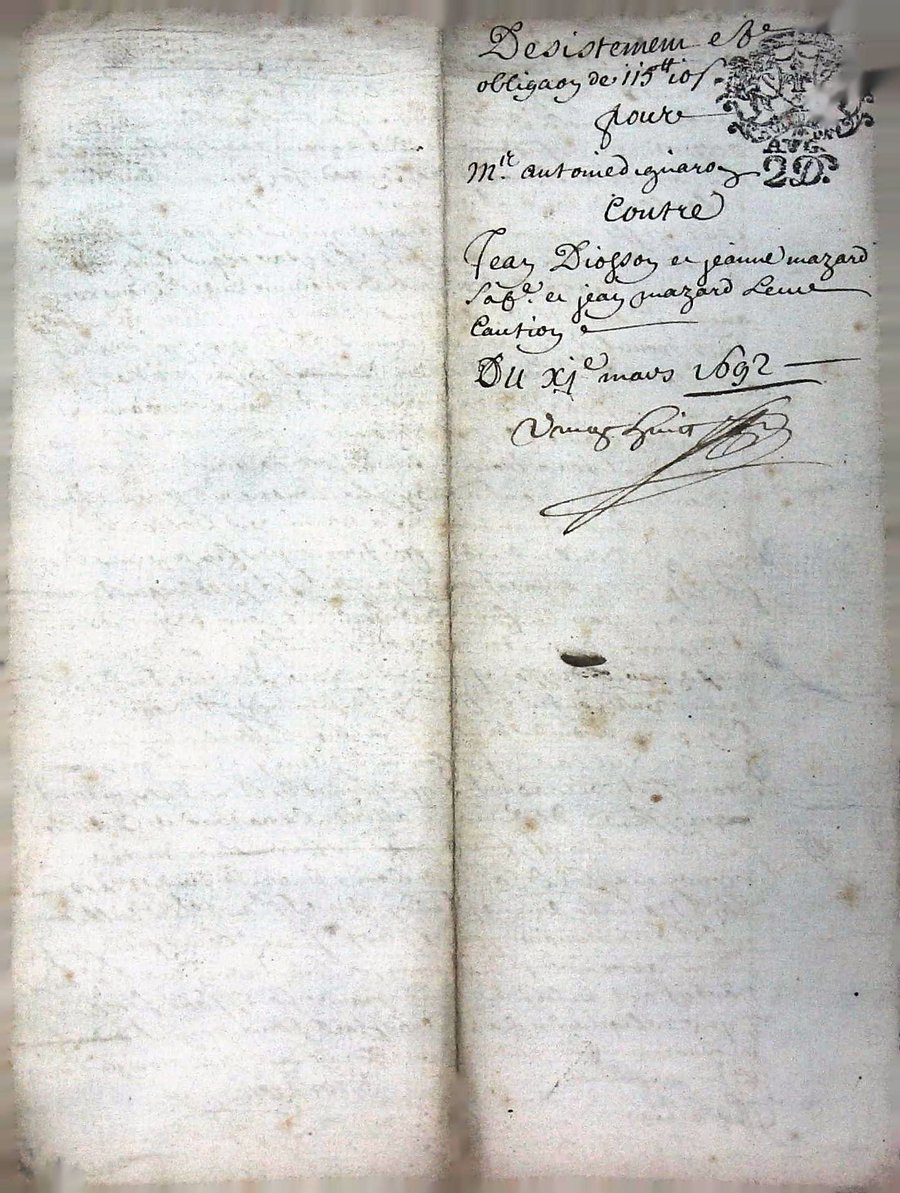 Desistement et
obligaon de 115tt 10s
pour
Mre antoine diguaron
Contre
Jean Diosson et jeanne mazard
sa fe. et jean mazard Leur
Caution
Du xje mars 1692
Vingt huict
AUG
2D.